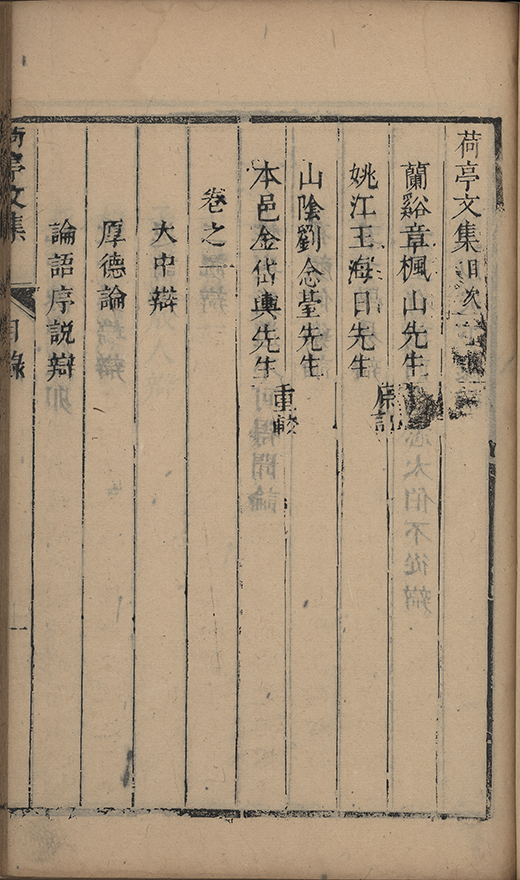 荷亭文集目次
蘭谿章楓山先生
姚江王海日先生
序記
山陰劉念臺先生
本邑金岱輿先生
重較
卷之一
大中辯
厚德論
論語序説辯
荷亭文集
目錄
一